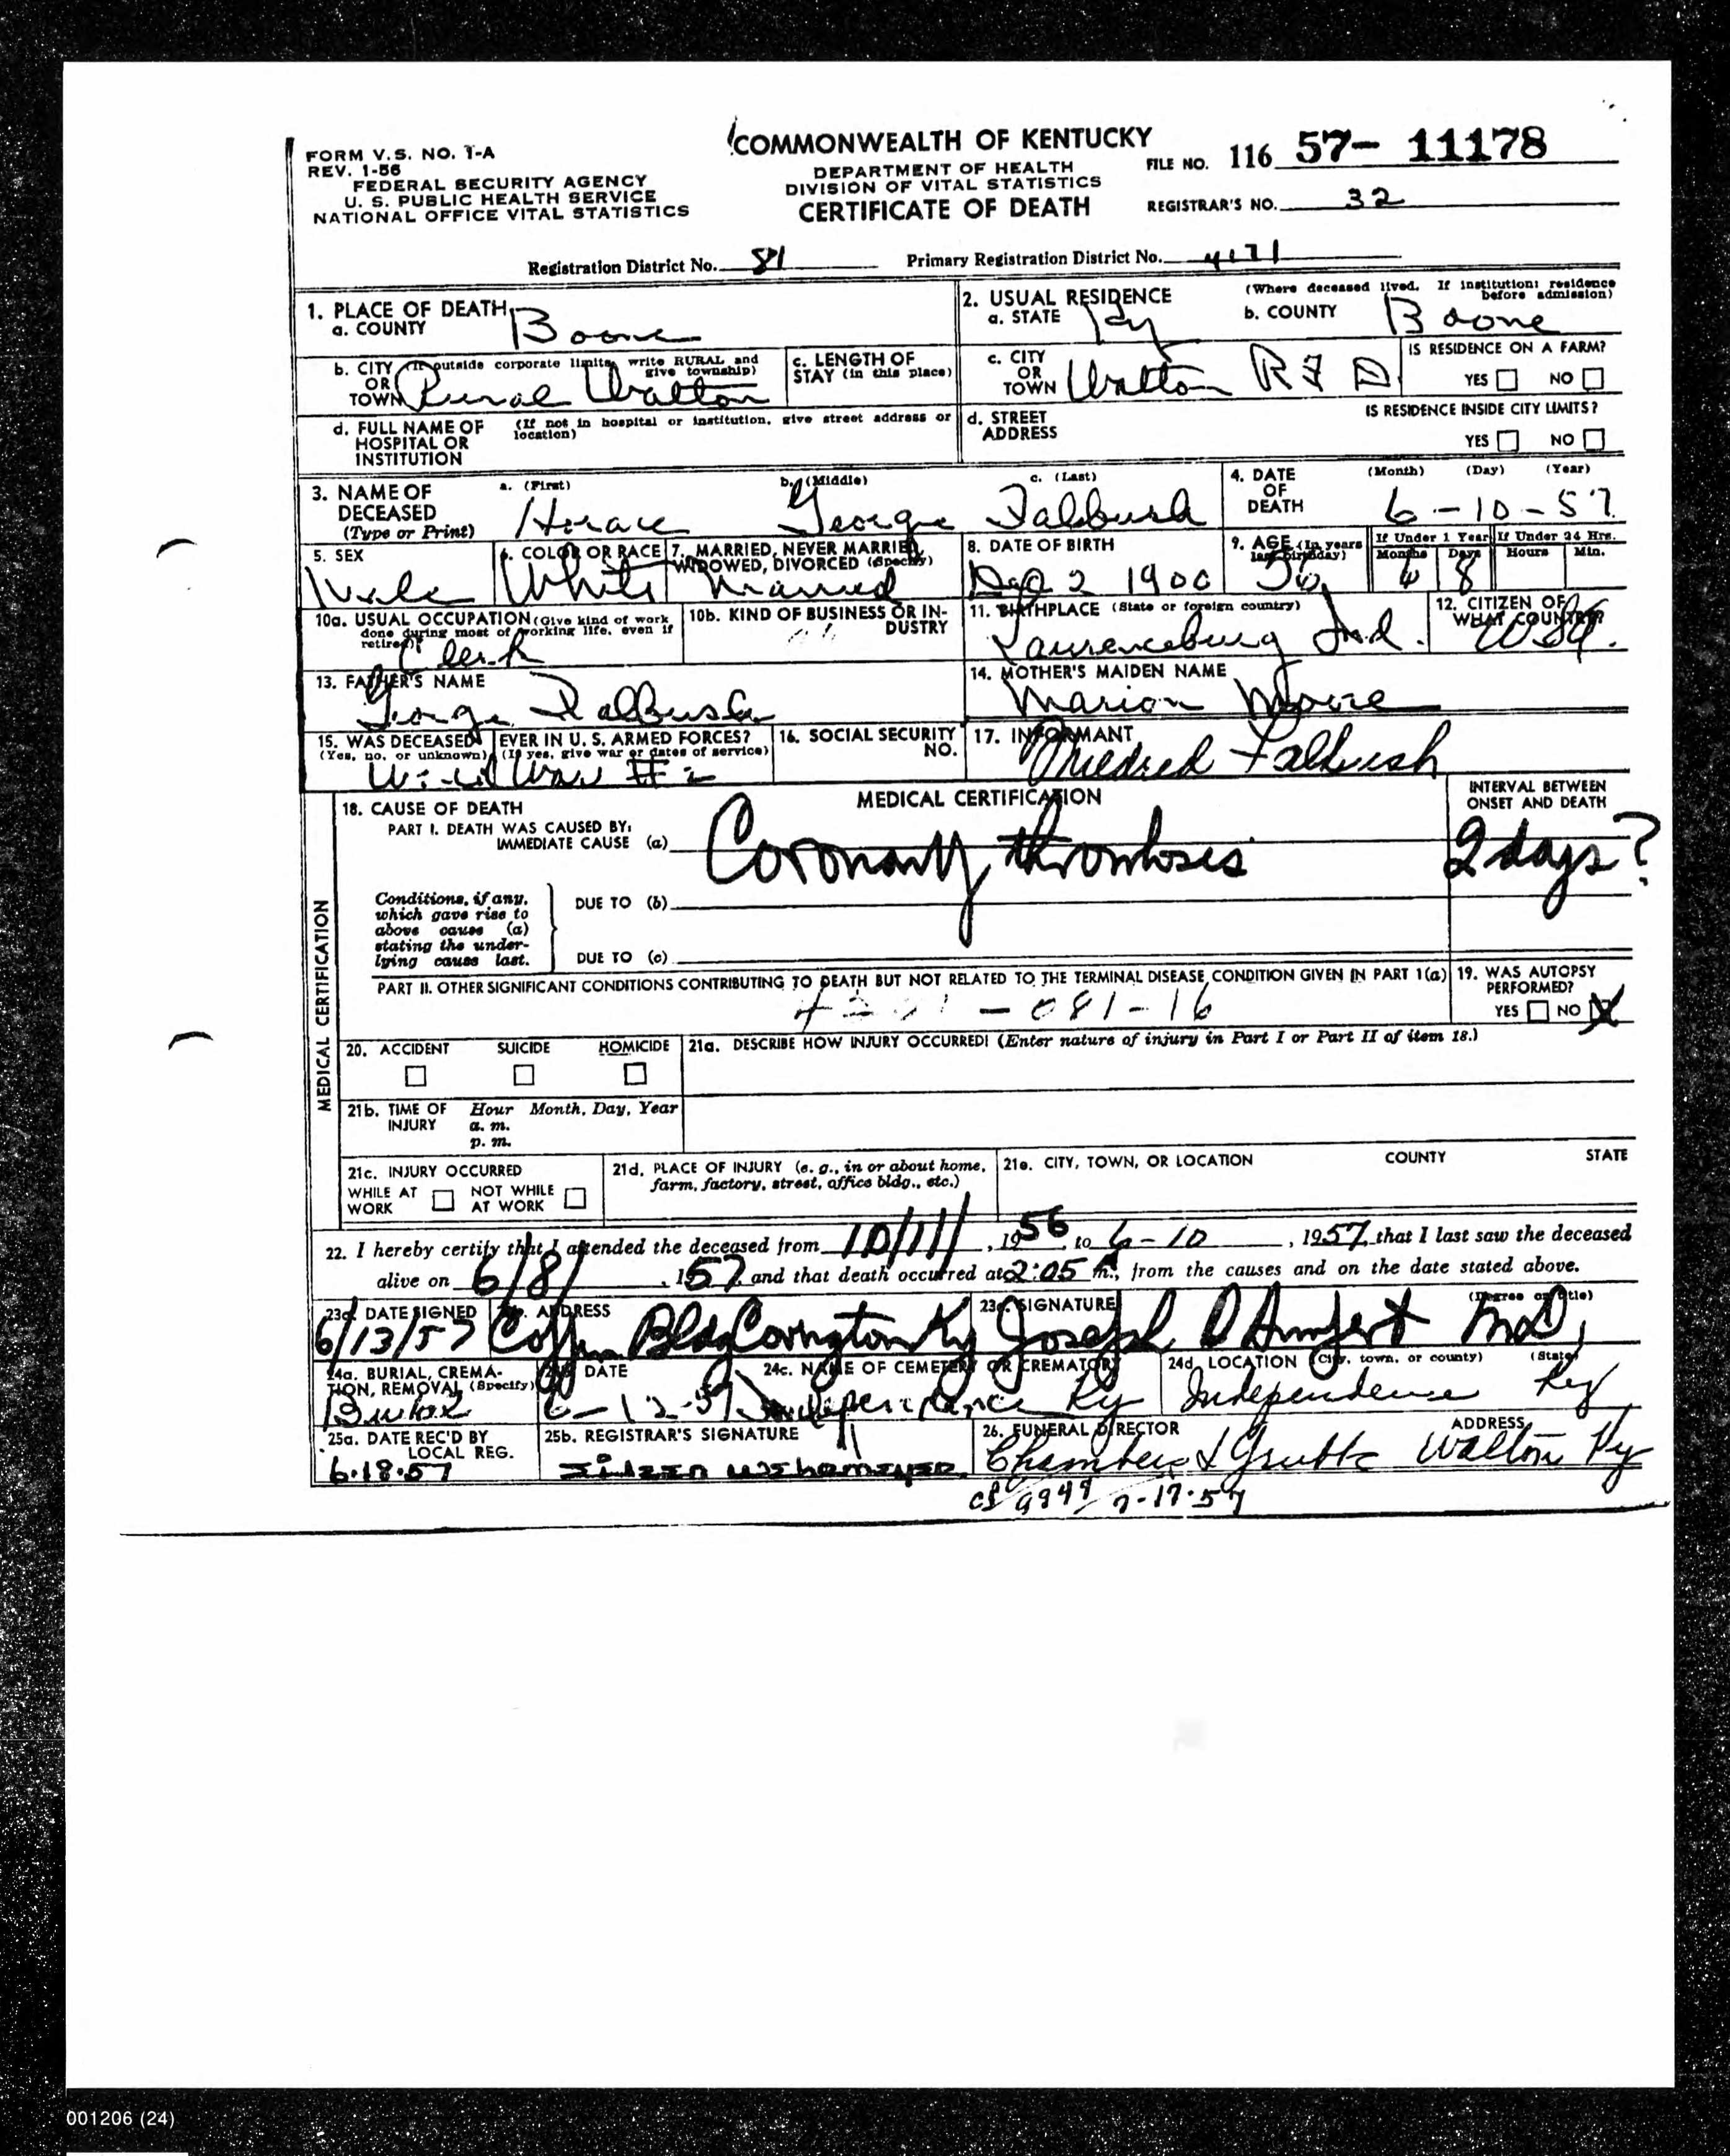 COMMONWEALTH OF KENTUCKY
FORM V.S. NO. 1-A
REV. 1-56
FEDERAL SECURITY AGENCY
U. S. PUBLIC HEALTH SERVICE
NATIONAL OFFICE VITAL STATISTICS
DEPARTMENT OF HEALTH
DIVISION OF VITAL STATISTICS
CERTIFICATE OF DEATH
FILE NO. 116 57- 11178
REGISTRAR'S NO. 32
Registration District No. 81 Primary Registration District No.
1. PLACE OF DEATH
a. COUNTY Boone
2. USUAL RESIDENCE (Where deceased lived. If institution: residence before admission)
a. STATE Ky b. COUNTY Boone
b. CITY OR TOWN (If outside corporate limits, write RURAL and give township) Rural Walton
c. LENGTH OF STAY (in this place)
c. CITY OR TOWN Walton RFD
IS RESIDENCE ON A FARM?
YES NO
d. FULL NAME OF HOSPITAL OR INSTITUTION (If not in hospital or institution, give street address or location)
d. STREET ADDRESS
IS RESIDENCE INSIDE CITY LIMITS?
YES NO
3. NAME OF DECEASED (Type or Print)
a. (First) Horace b. (Middle) George c. (Last) Falbush
4. DATE OF DEATH (Month) (Day) (Year) 6-10-57
5. SEX Male
6. COLOR OR RACE White
7. MARRIED, NEVER MARRIED, WIDOWED, DIVORCED (Specify) Married
8. DATE OF BIRTH 2 1900
9. AGE (In years last birthday) 56
If Under 1 Year Months 6 Days 8
If Under 24 Hrs. Hours Min.
10a. USUAL OCCUPATION (Give kind of work done during most of working life, even if retired) Clerk
10b. KIND OF BUSINESS OR INDUSTRY
11. BIRTHPLACE (State or foreign country) Lawrenceburg Ind.
12. CITIZEN OF WHAT COUNTRY? USA.
13. FATHER'S NAME George Falbush
14. MOTHER'S MAIDEN NAME Marion Moore
15. WAS DECEASED EVER IN U. S. ARMED FORCES?
(Yes, no, or unknown) (If yes, give war or dates of service)
World War # 2
16. SOCIAL SECURITY NO.
17. INFORMANT Mildred Falbush
MEDICAL CERTIFICATION
18. CAUSE OF DEATH
PART I. DEATH WAS CAUSED BY:
IMMEDIATE CAUSE (a) Coronary thrombosis
INTERVAL BETWEEN ONSET AND DEATH
2 days?
Conditions, if any, which gave rise to above cause (a) stating the underlying cause last.
DUE TO (b)
DUE TO (c)
PART II. OTHER SIGNIFICANT CONDITIONS CONTRIBUTING TO DEATH BUT NOT RELATED TO THE TERMINAL DISEASE CONDITION GIVEN IN PART 1(a)
- 081-16
19. WAS AUTOPSY PERFORMED?
YES NO X
MEDICAL CERTIFICATION
20. ACCIDENT SUICIDE HOMICIDE
21a. DESCRIBE HOW INJURY OCCURRED! (Enter nature of injury in Part I or Part II of item 18.)
21b. TIME OF INJURY Hour Month, Day, Year
a. m.
p. m.
21c. INJURY OCCURRED
WHILE AT WORK NOT WHILE AT WORK
21d. PLACE OF INJURY (e. g., in or about home, farm, factory, street, office bldg., etc.)
21e. CITY, TOWN, OR LOCATION COUNTY STATE
22. I hereby certify that I attended the deceased from 10/11/, 1956 to 6-10, 1957, that I last saw the deceased
alive on 6/8/, 157, and that death occurred at 2:05 A m., from the causes and on the date stated above.
23a. DATE SIGNED 6/13/57
23b. ADDRESS Bldg Covington Ky
23c. SIGNATURE (Degree or title) Joseph MD,
24a. BURIAL, CREMATION, REMOVAL (Specify) Burial
24b. DATE 6-12-57
24c. NAME OF CEMETERY OR CREMATORY Independence Ky
24d. LOCATION (City, town, or county) (State) Independence Ky
25a. DATE REC'D BY LOCAL REG. 6-18-57
25b. REGISTRAR'S SIGNATURE Eileen
26. FUNERAL DIRECTOR ADDRESS
Chambers & Grubbs Walton Ky
9949 7-17-57
001206 (24)